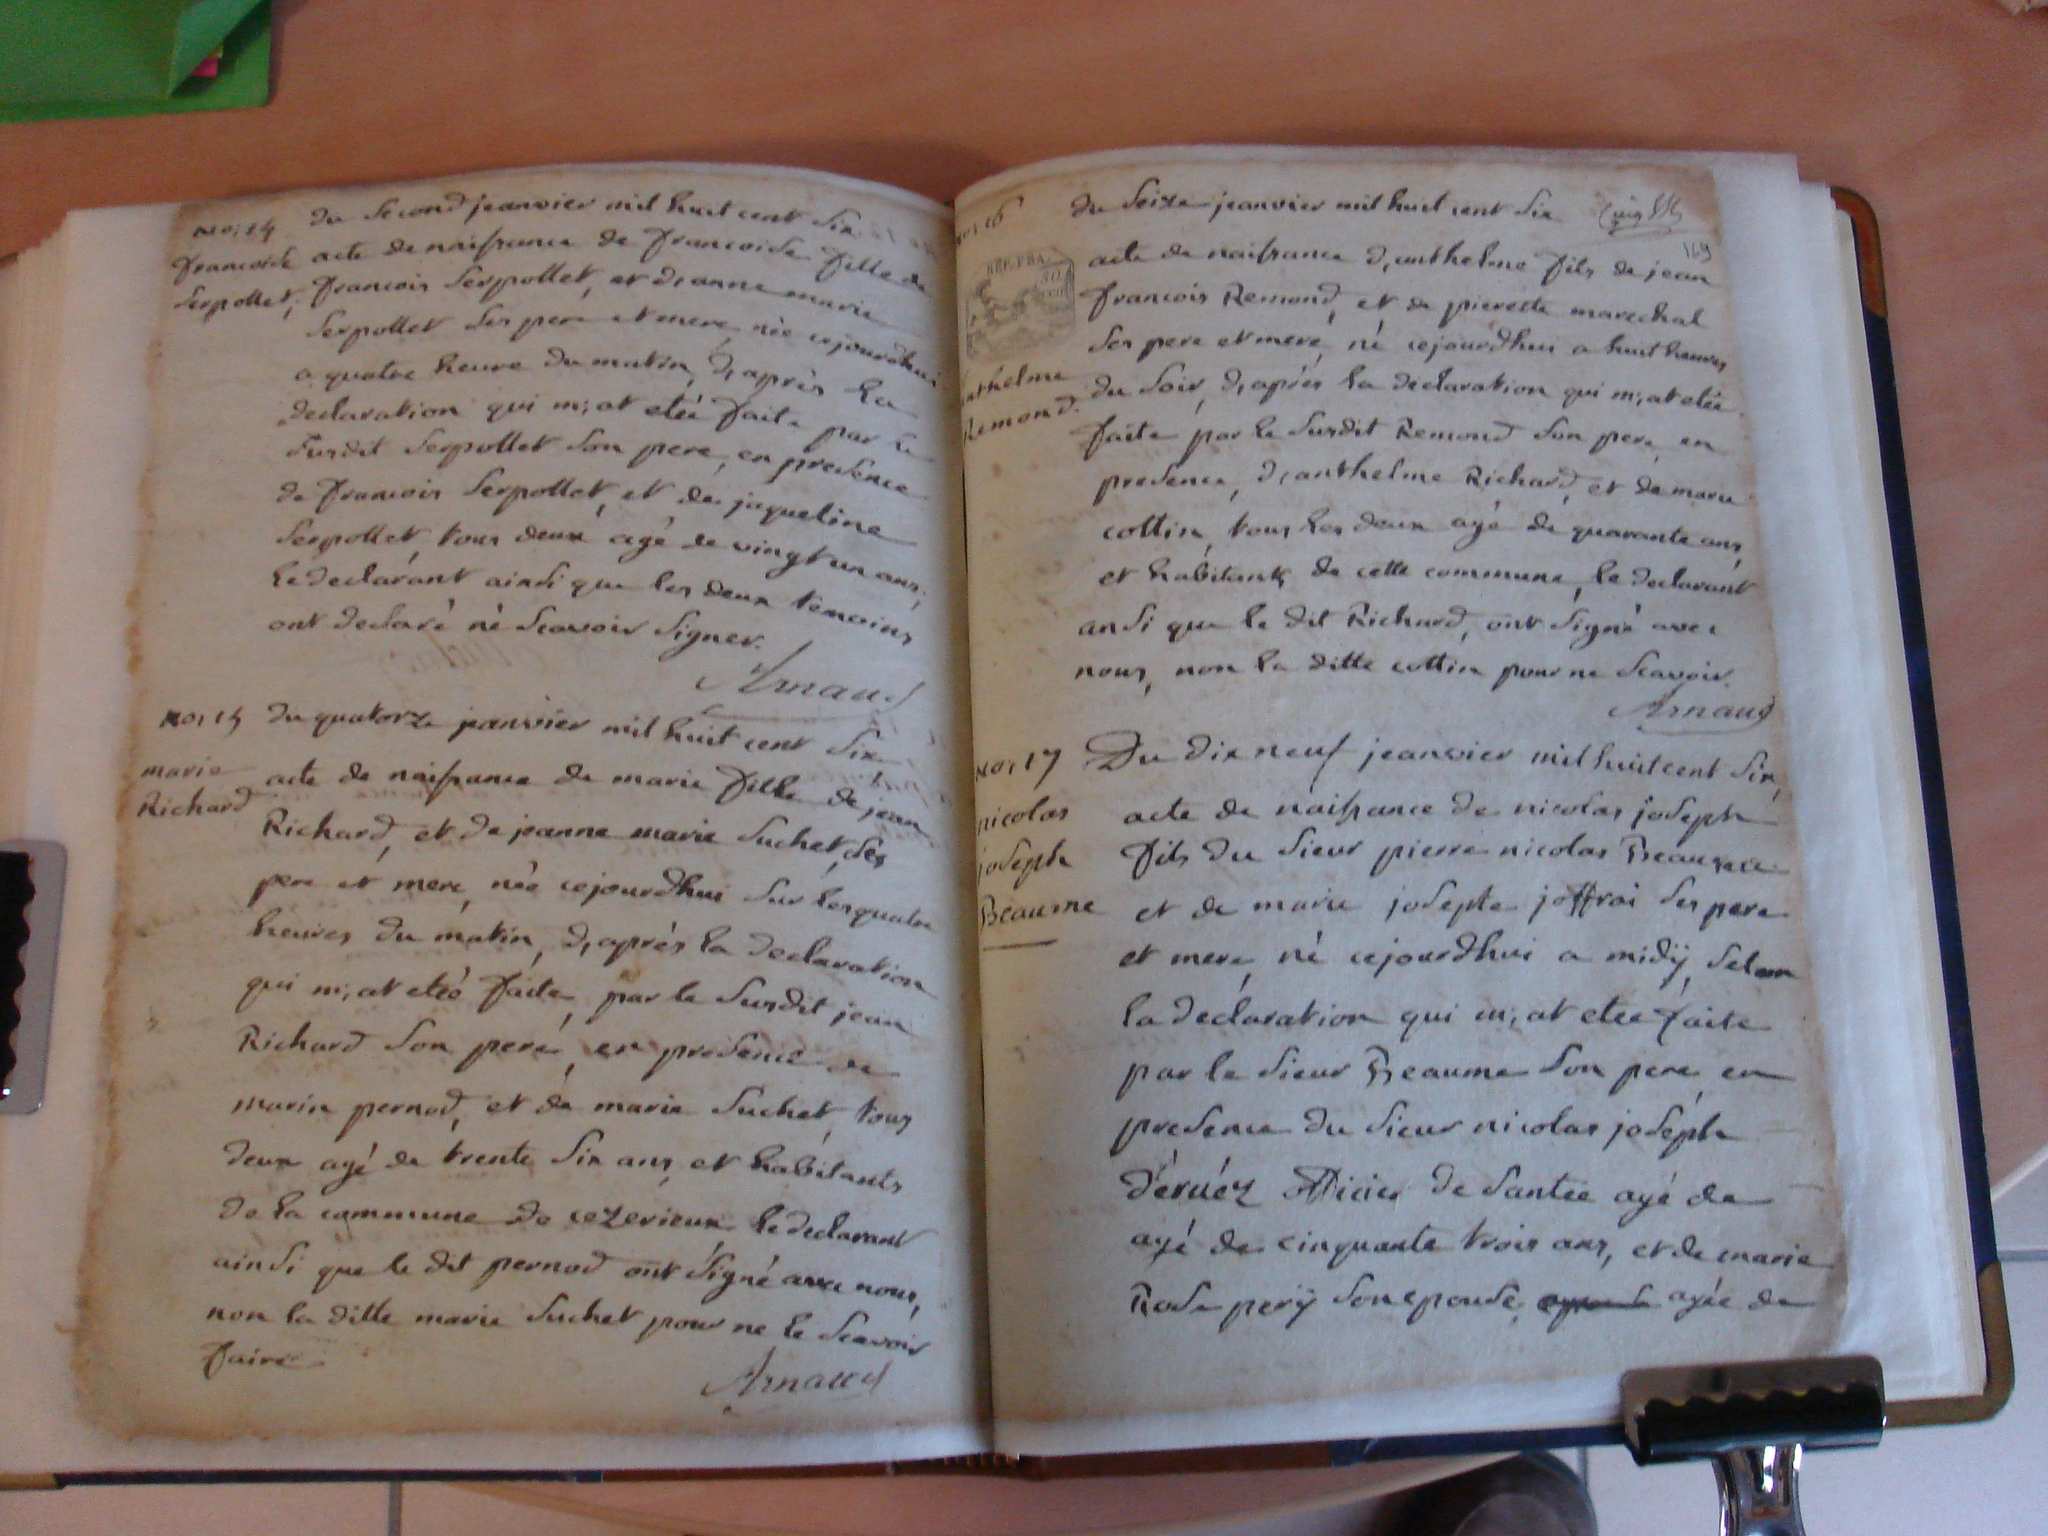 no, 14
francoise
Serpollet,
du Second jeanvier mil huit cent Six
acte de naissance de francoise fille de
francois Serpollet, et d,anne marie
Serpollet Ses pere et mere, née cejourdhui
a quatre heure du matin, d,après la
declaration qui m,at eteé faite par le
Susdit Serpollet Son pere, en presence
de francois Serpollet, et de jaqueline
Serpollet, tous deux agé de vingt un ans,
le declarant ainsi que les deux temoins
ont declaré né Scavoir Signer.
Arnaud
no, 15
marie
Richard
du quatorze jeanvier mil huit cent Six
acte de naissance de marie fille de jean
Richard, et de jeanne marie Suchet, Ses
pere et mere, née cejourdhui Sur les quatre
heures du matin, d,après la declaration
qui m,at eteé faite, par le Susdit jean
Richard Son pere, en presence de
marin pernod, et de marie Suchet, tous
deux agé de trente Six ans, et habitants
de la commune de cezerieux, le declarant
ainsi que le dit pernod ont Signé avec nous,
non la ditte marie Suchet pour ne le Scavoir
faire
Arnaud
no, 16
du Seize jeanvier mil huit cent Six
169
REP. FRA.
anthelme
Remond.
acte de naissance d,anthelme fils de jean
francois Remond, et de pierette marechal
Ses pere et mere, né cejourdhui a huit heures
du Soir, d,après la declaration qui m,at eteé
faite par le Susdit Remond Son pere, en
presence, d,anthelme Richard, et de marie
cottin, tous les deux agé de quarante ans,
et habitants de cette commune, le declarant
ansi que le dit Richard, ont Signé avec
nous, non la ditte cottin pour ne Scavoir.
Arnaud
no, 17
nicolas
joseph
Beaume
Du dix neuf jeanvier mil huit cent Six,
acte de naissance de nicolas joseph
fils du Sieur pierre nicolas Beaume
et de marie josepte joffrai Ses pere
et mere, né cejourdhui a midÿ, Selon
la declaration qui m,at eteé faite
par le Sieur Beaume Son pere, en
presence du Sieur nicolas joseph
dervéz officier de Santée agé de
agé de cinquante trois ans, et de marie
Rose perÿ Son epouse, agée de